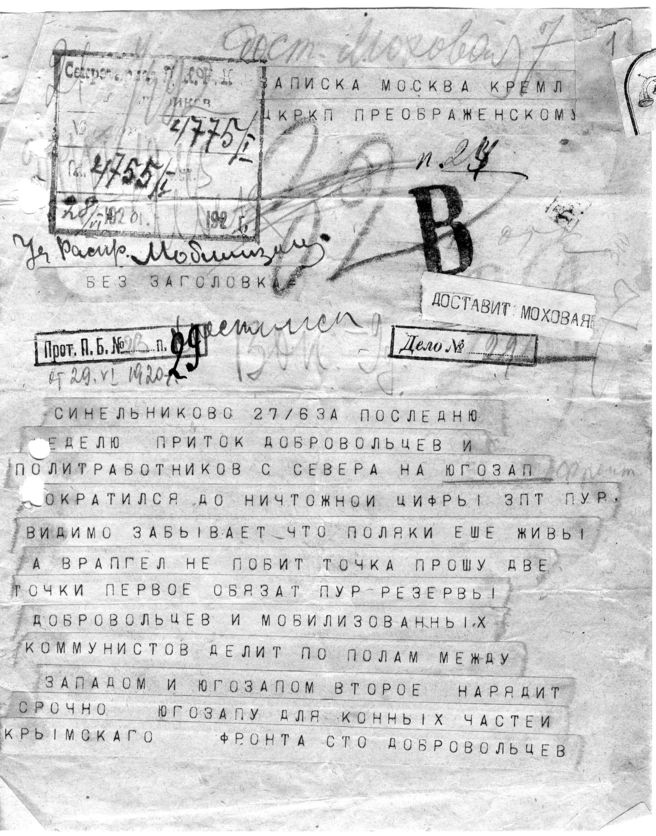 Дост. Моховая 7
1
ЗАПИСКА МОСКВА КРЕМЛ
ЦКРКП ПРЕОБРАЖЕНСКОМУ
4775/I
4755/I
п. 24
В
Мобилизац
БЕЗ ЗАГОЛОВКА=
ДОСТАВИТ: МОХОВАЯ
Прот. П. Б. № 23 п. 29
Дело №
от 29.VI 1920
СИНЕЛЬНИКОВО 27/6 ЗА ПОСЛЕДНЮ
ЕДЕЛЮ ПРИТОК ДОБРОВОЛЬЦЕВ И
ПОЛИТРАБОТНИКОВ С СЕВЕРА НА ЮГОЗАП
ОКРАТИЛСЯ ДО НИЧТОЖНОИ ЦИФРЫ ЗПТ ПУР
ВИДИМО ЗАБЫВАЕТ ЧТО ПОЛЯКИ ЕШЕ ЖИВЫ
А ВРАПГЕЛ НЕ ПОБИТ ТОЧКА ПРОШУ ДВЕ
ТОЧКИ ПЕРВОЕ ОБЯЗАТ ПУР РЕЗЕРВЫ
ДОБРОВОЛЬЦЕВ И МОБИЛИЗОВАННЫХ
КОММУНИСТОВ ДЕЛИТ ПО ПОЛАМ МЕЖДУ
ЗАПАДОМ И ЮГОЗАПОМ ВТОРОЕ НАРЯДИТ
СРОЧНО ЮГОЗАПУ ДЛЯ КОННЫХ ЧАСТЕЙ
КРЫМСКАГО ФРОНТА СТО ДОБРОВОЛЬЦЕВ